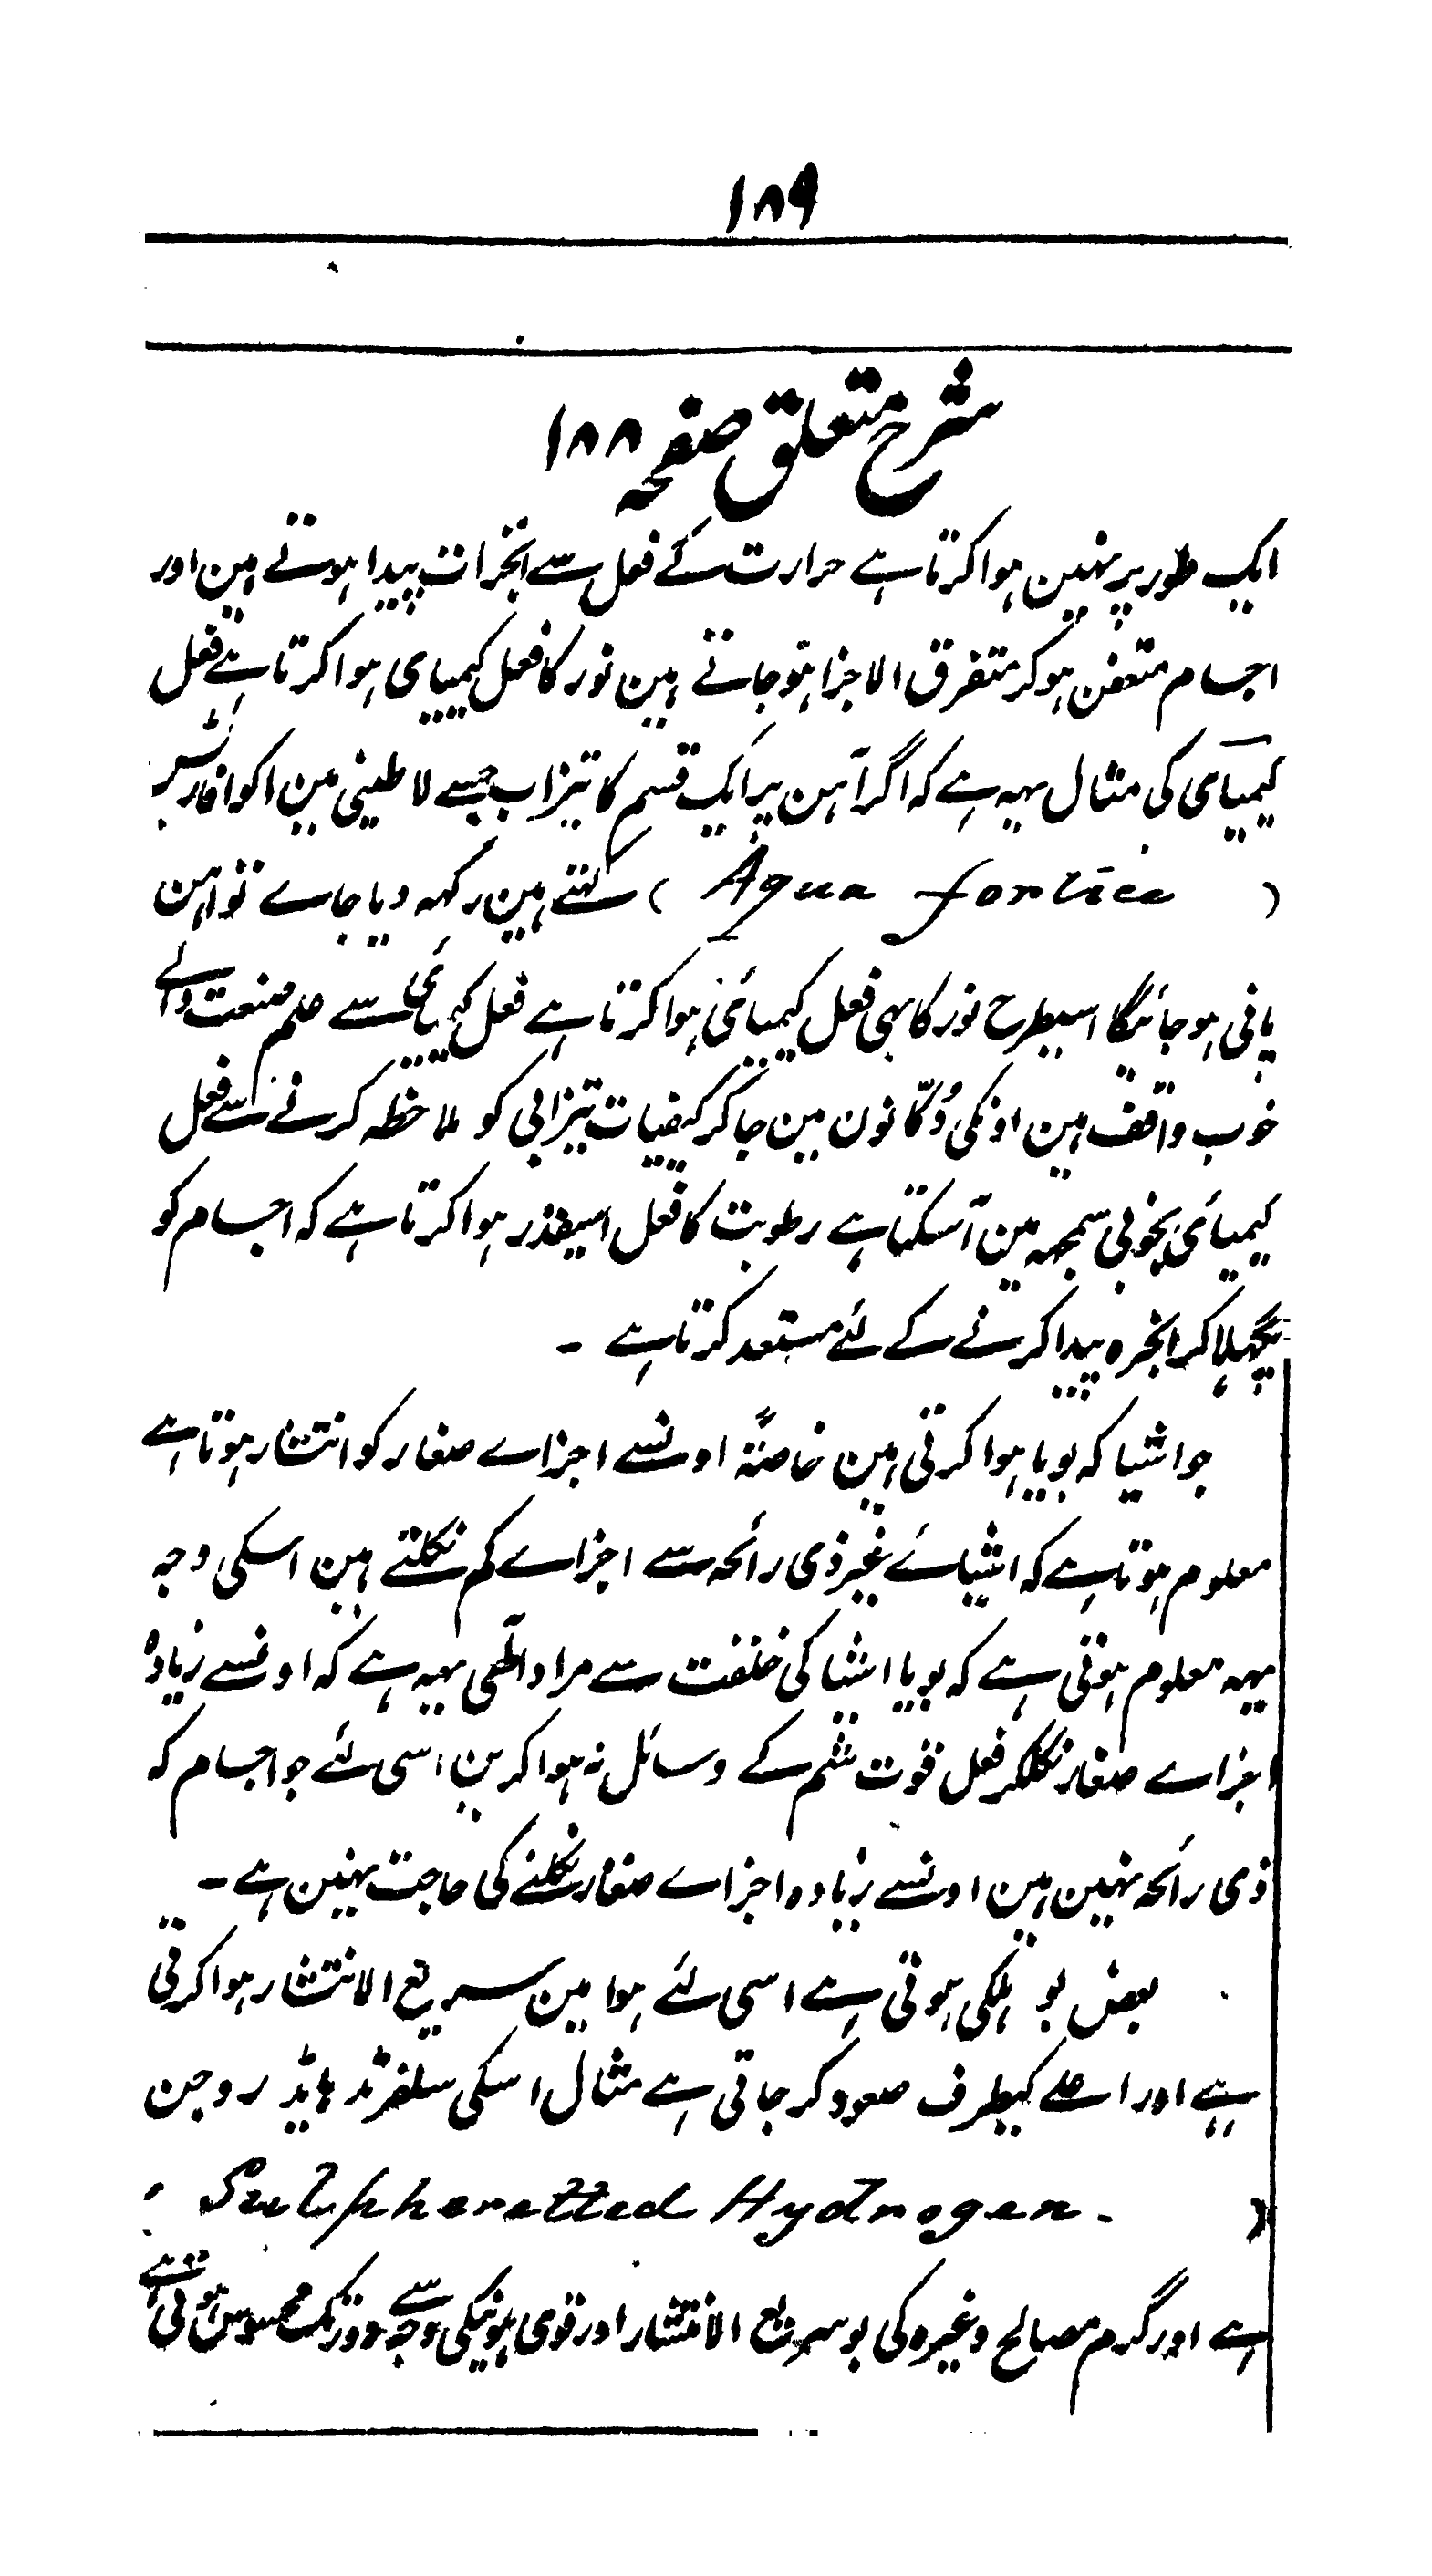 ۱۸۹
شرح متعلق صفحہ ۱۸۸
ایک طور پر نہین ہوا کرتا ہے حرارت کے فعل سے ابخرات پیدا ہوتے ہین اور
اجسام متعفن ہو کر متفرق الاجزا ہو جاتے ہین نور کا فعل کیمیای ہوا کرتا ہے فعل
کیمیای کی مثال یہہ ہے کہ اگر آہن پر ایک قسم کا تیزاب جسے لاطینی مین اکوافارٹس
( Aqua fortice ) کہتے ہین رکہہ دیا جاے تو آہن
پانی ہو جائیگا اسیطرح نور کا بہی فعل کیمیائی ہوا کرتا ہے فعل کیمیائی سے علم صنعت والے
خوب واقف ہین اونکی دُکّانون مین جا کر کیفیات تیزابی کو ملاحظہ کرنے سے فعل
کیمیائی بخوبی سمجہہ مین آسکتا ہے رطوبت کا فعل اسیقدر ہوا کرتا ہے کہ اجسام کو
پگہلا کر ابخرہ پیدا کرنے کے لئے مستعد کرتا ہے ۔
جو اشیا کہ بویا ہوا کرتی ہین خاصتہً اونسے اجزاے صغار کو انتشار ہوتا ہے
معلوم ہوتا ہے کہ اشیاے غیر ذی رائحہ سے اجزاے کم نکلتے ہین اسکی وجہ
یہہ معلوم ہوتی ہے کہ بویا اشیا کی خلقت سے مراد الٰهی یہہ ہے کہ اونسے زیادہ
اجزاے صغار نکلکر فعل قوت شم کے وسائل نہ ہوا کرین اسی لئے جو اجسام کہ
ذی رائحہ نہین ہین اونسے زیادہ اجزاے صغار نکلنے کی حاجت نہین ہے ۔
بعض بو ہلکی ہوتی ہے اسی لئے ہوا مین سریع الانتشار ہوا کرتی
ہے اور اعلے کیطرف صعود کر جاتی ہے مثال اسکی سلفرٹد ہایڈروجن
( Sulpheretted Hydrogen. )
ہے اور گرم مصالح وغیرہ کی بو سریع الانتشار اور قوی ہونیکی وجہ سے دور تک محسوس ہوتی ہے